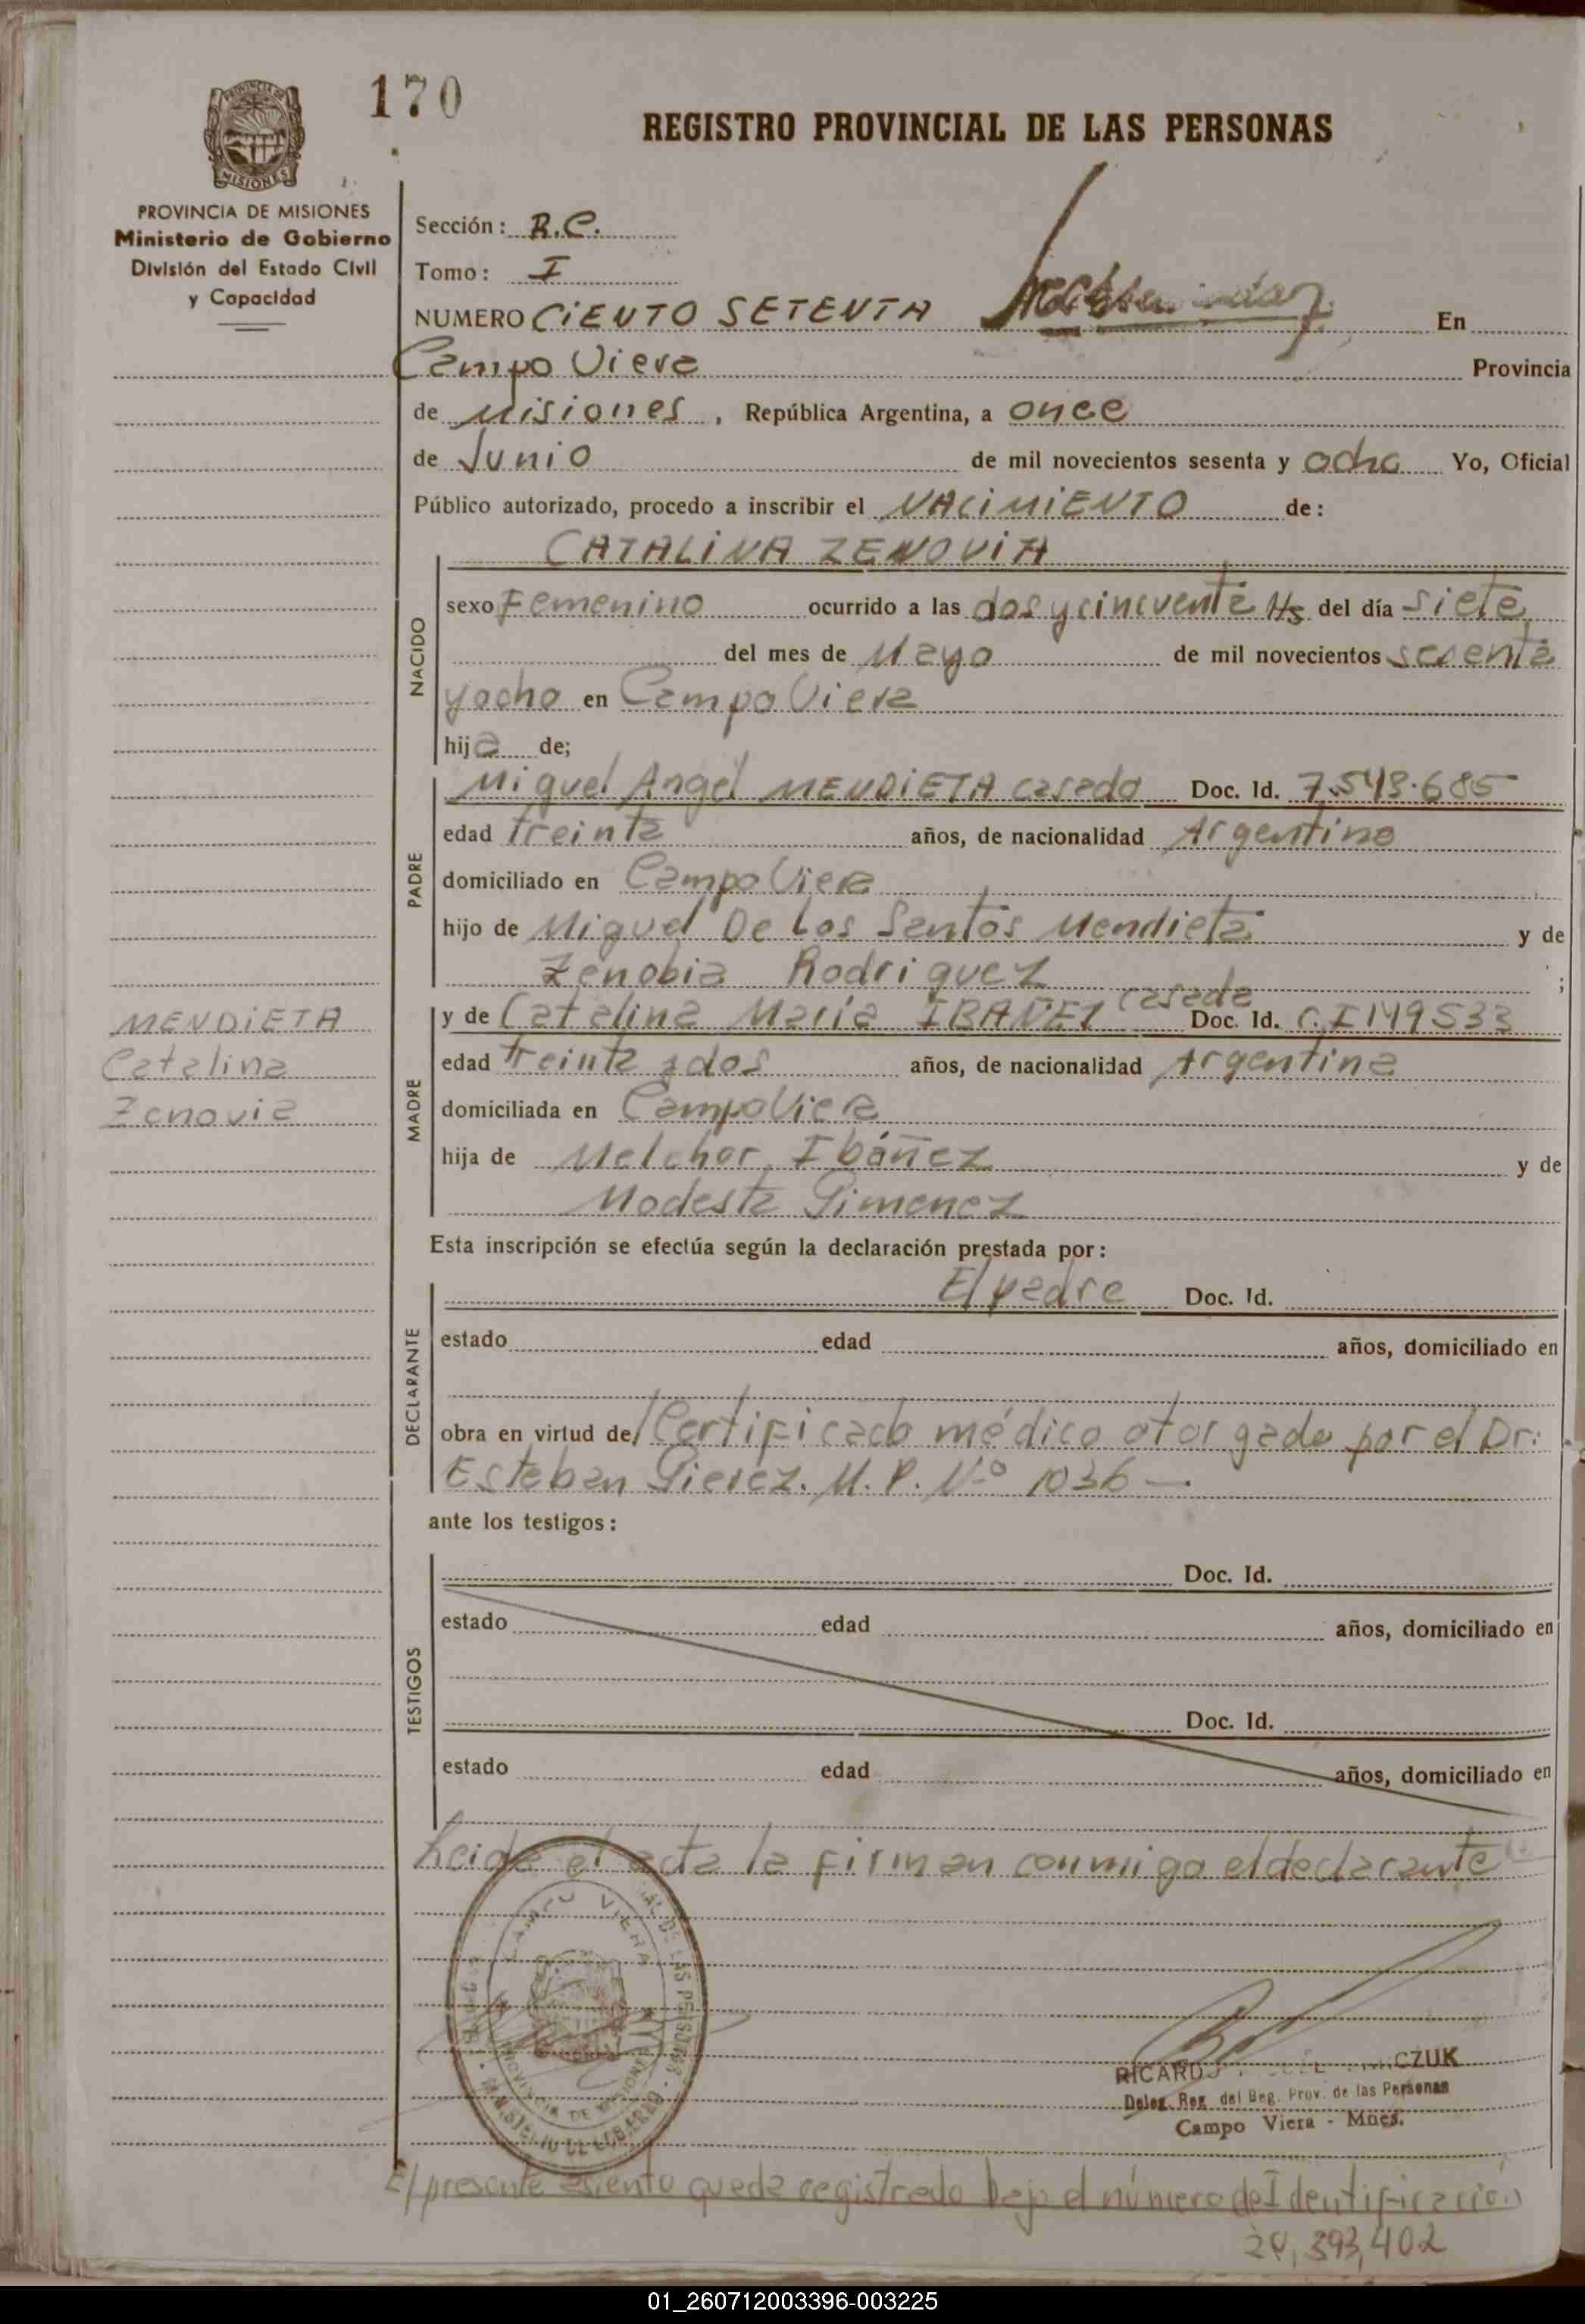 170
REGISTRO PROVINCIAL DE LAS PERSONAS
PROVINCIA DE
MISIONES
PROVINCIA DE MISIONES
Ministerio de Gobierno
División del Estado Civil
y Capacidad
Sección: R.C.
Tomo: I
NUMERO CIENTO SETENTA En
Campo Viera Provincia
de Misiones, República Argentina, a once
de Junio de mil novecientos sesenta y ocho Yo, Oficial
Público autorizado, procedo a inscribir el NACIMIENTO de:
CATALINA ZENOVIA
NACIDO
sexo Femenino ocurrido a las dos y cincuenta Hs del día siete
del mes de Mayo de mil novecientos sesenta
y ocho en Campo Viera
hija de;
PADRE
Miguel Angel MENDIETA casado Doc. Id. 7.543.685
edad treinta años, de nacionalidad Argentino
domiciliado en Campo Viera
hijo de Miguel De Los Santos Mendieta y de
Zenobia Rodriguez ;
MENDIETA
Catalina
Zenovia
MADRE
y de Catalina María IBAÑEZ casada Doc. Id. C.I 149533
edad treinta y dos años, de nacionalidad Argentina
domiciliada en Campo Viera
hija de Melchor Ibáñez y de
Modesta Gimenez
Esta inscripción se efectúa según la declaración prestada por:
DECLARANTE
El padre Doc. Id.
estado edad años, domiciliado en
obra en virtud del Certificado médico otorgado por el Dr:
Esteban M.P. Nº 1036 —
ante los testigos:
TESTIGOS
Doc. Id.
estado edad años, domiciliado en
Doc. Id.
estado edad años, domiciliado en
Leida el acta la firman conmigo el declarante
CAMPO VIERA
DE LAS PERSONAS
PROVINCIA DE MISIONES
MINISTERIO DE GOBIERNO
RICARDO CZUK
Deleg. Reg. del Reg. Prov. de las Personas
Campo Viera - Mnes.
El presente asiento queda registrado bajo el número de Identificación
20,393,402
01_260712003396-003225